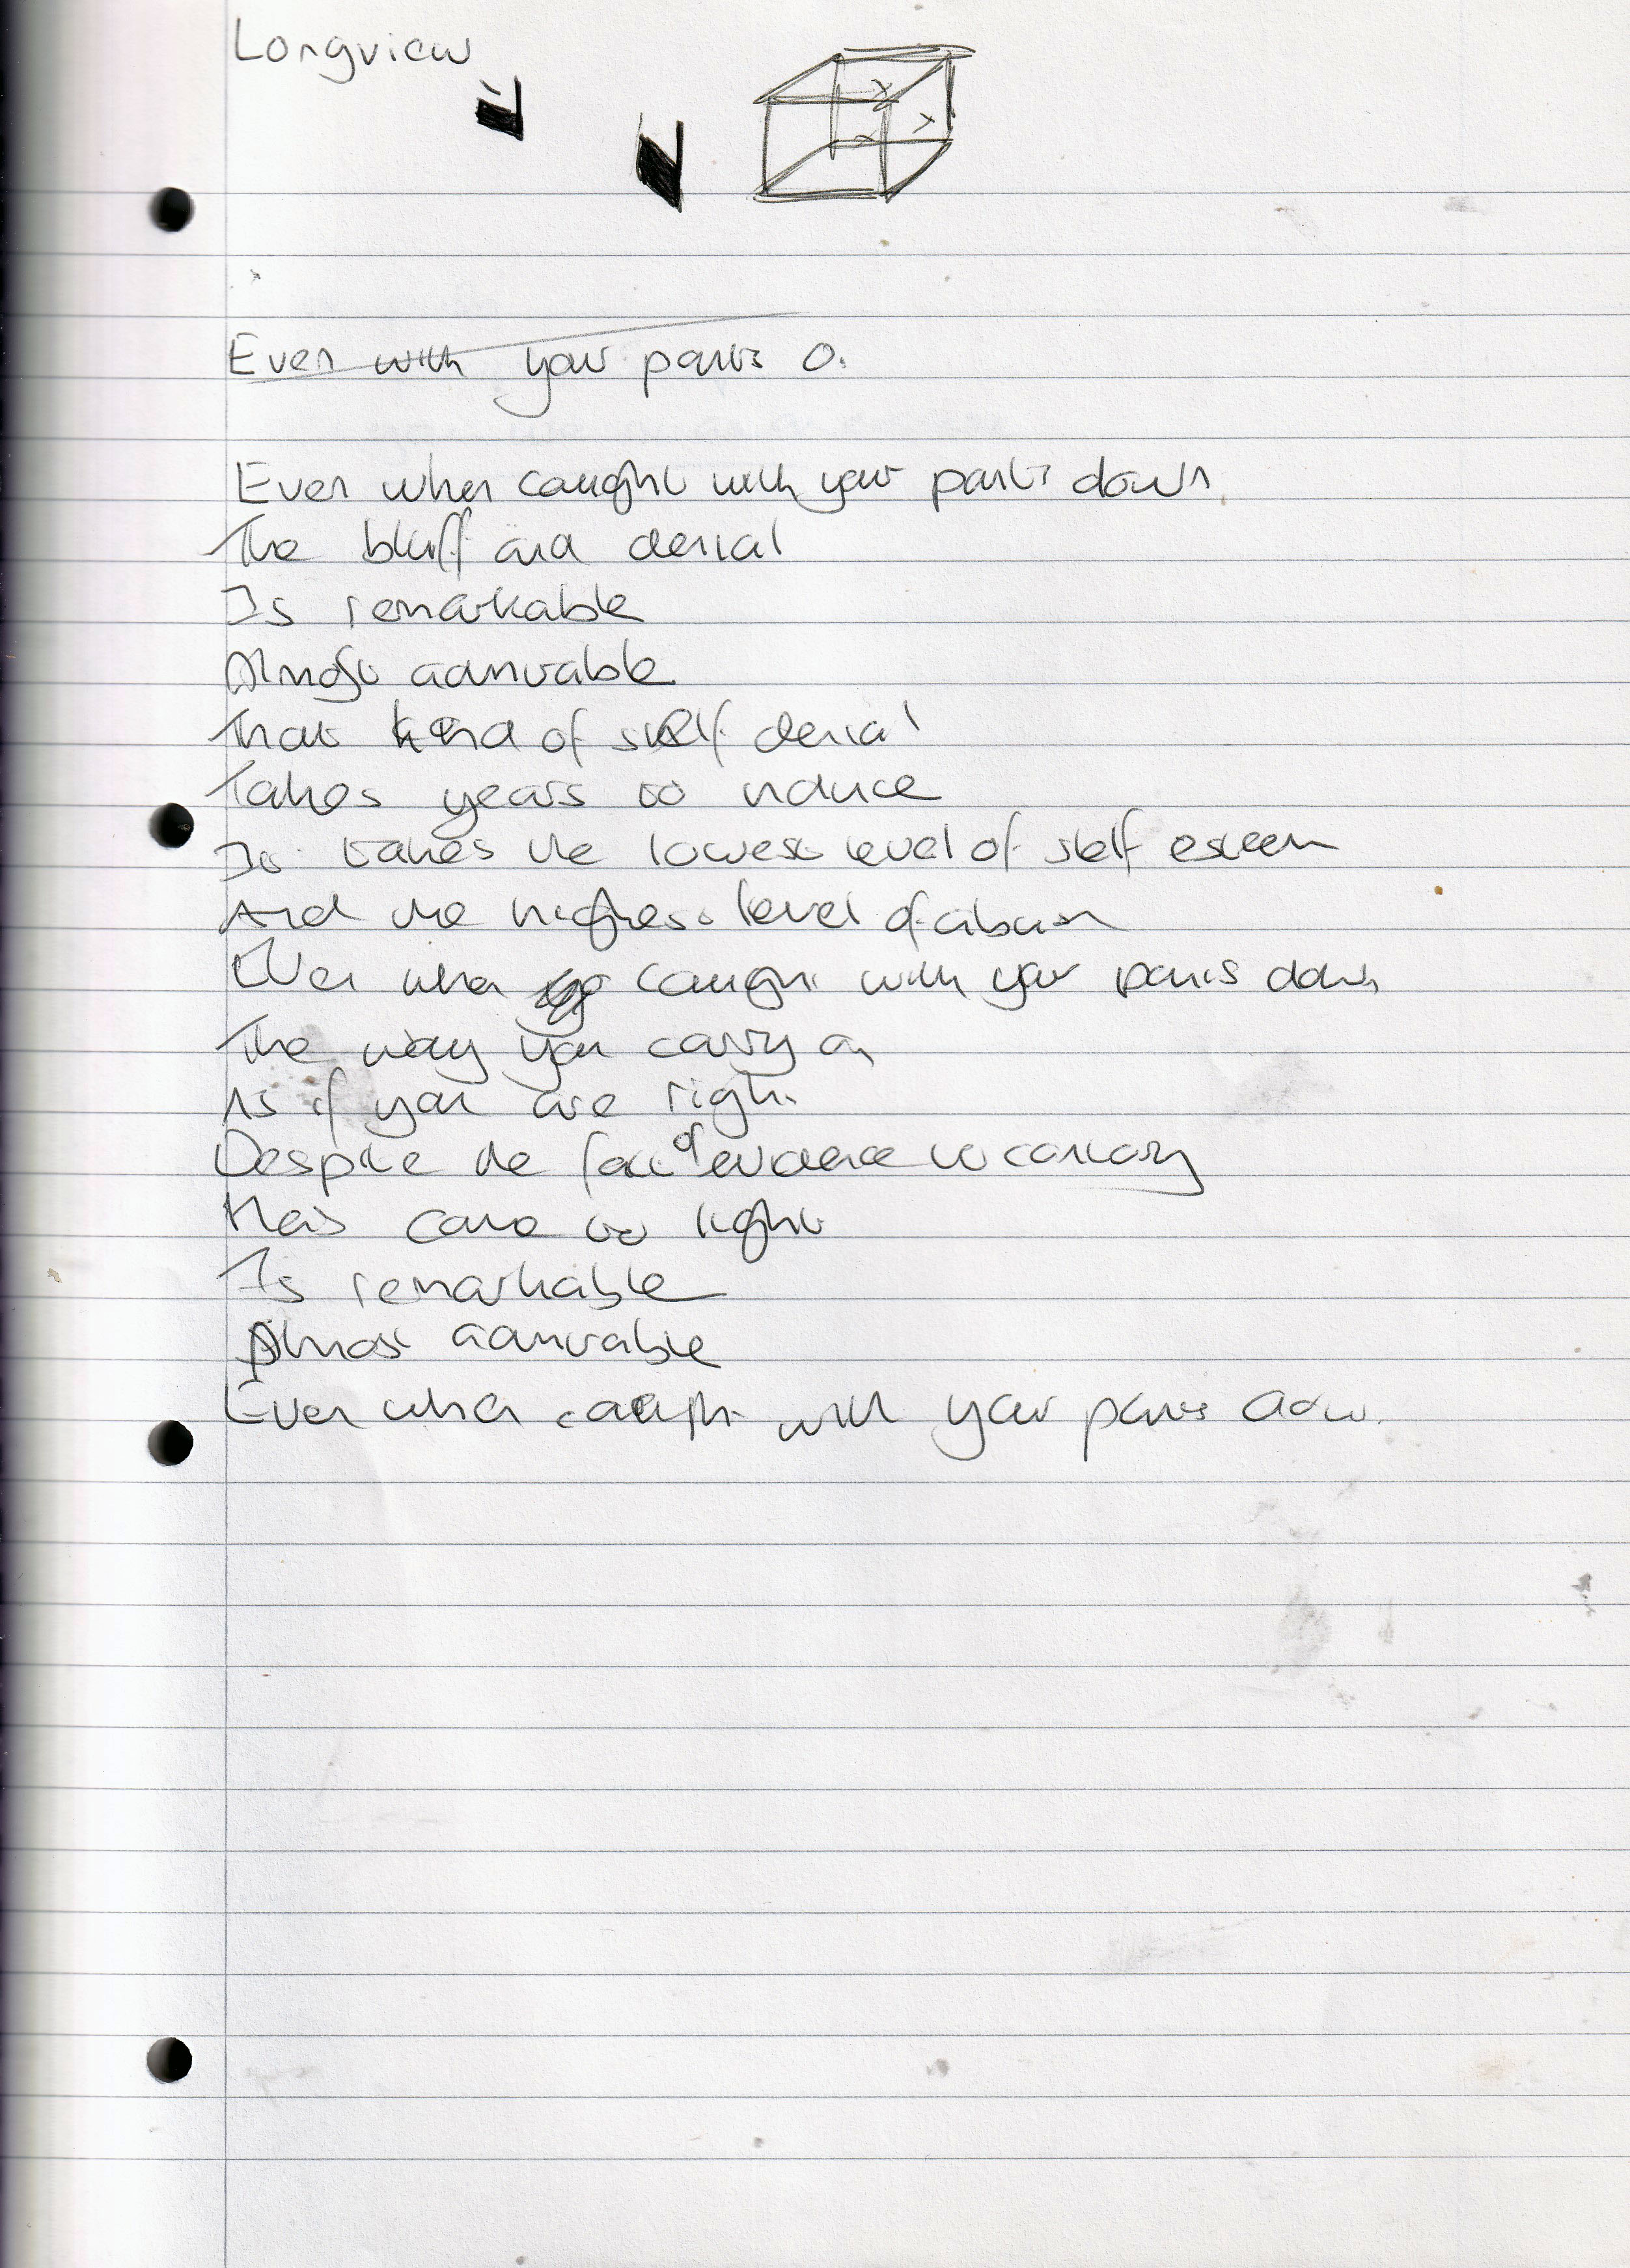 Longview
Even with your pants o.
Even when caught with your pants down
The bluff and denial
Is remarkable
Almost admirable
That kind of self denial
Takes years to induce
It takes the lowest level of self esteem
And the highest level of abuse
Even when caught with your pants down
The way you carry on
As if you are right
Despite the face of evidence to contrary
Has come to light
Is remarkable
Almost admirable
Even when caught with your pants down.